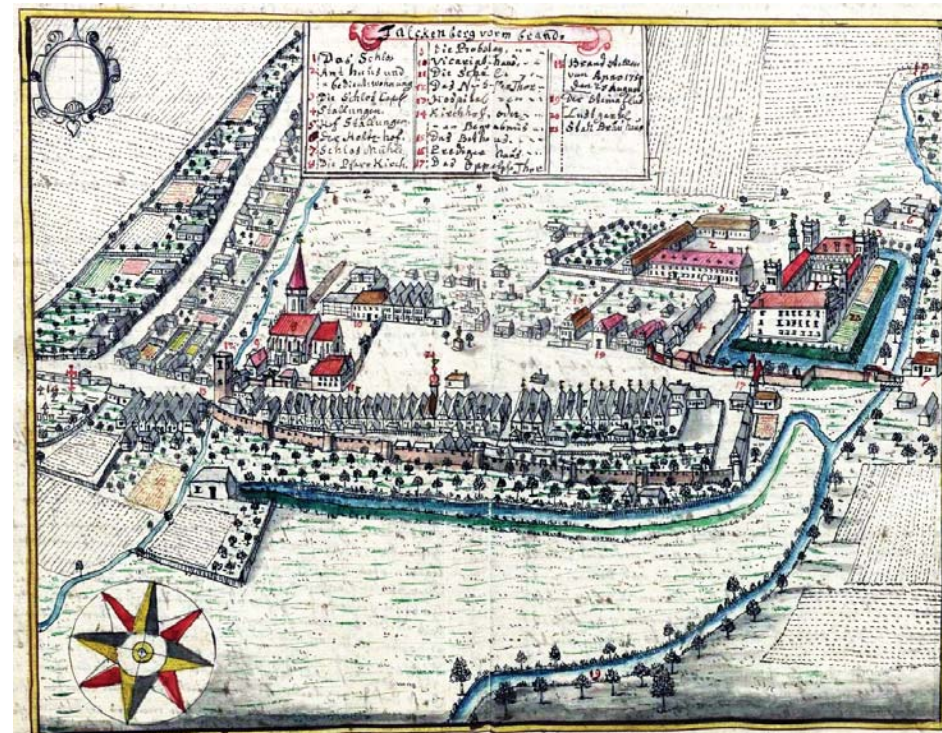 Falckenberg vorm brande
1 Das Schlos
2 Amt haus und
bedientwohnung
3 Die Schlos Capel
4 Stallungen.
5 Hof Stallungen.
6 Der Holtz hof.
7 Schlos Mühle
8 Die Pfarr Kirch.
9 Die Probstey
10 Vicariat-haus
11 Die Schule
12 Das Thor
13 Hospital
14 Kirchhof, oder
Begräbnis
15 Das Bethaus
16 Prediger haus
17 Das Oppelsche Thor
18 Brand
von Anno
den 20 August
19 Die Steinaflus
20 Lustgarten
21 Stat Brau haus